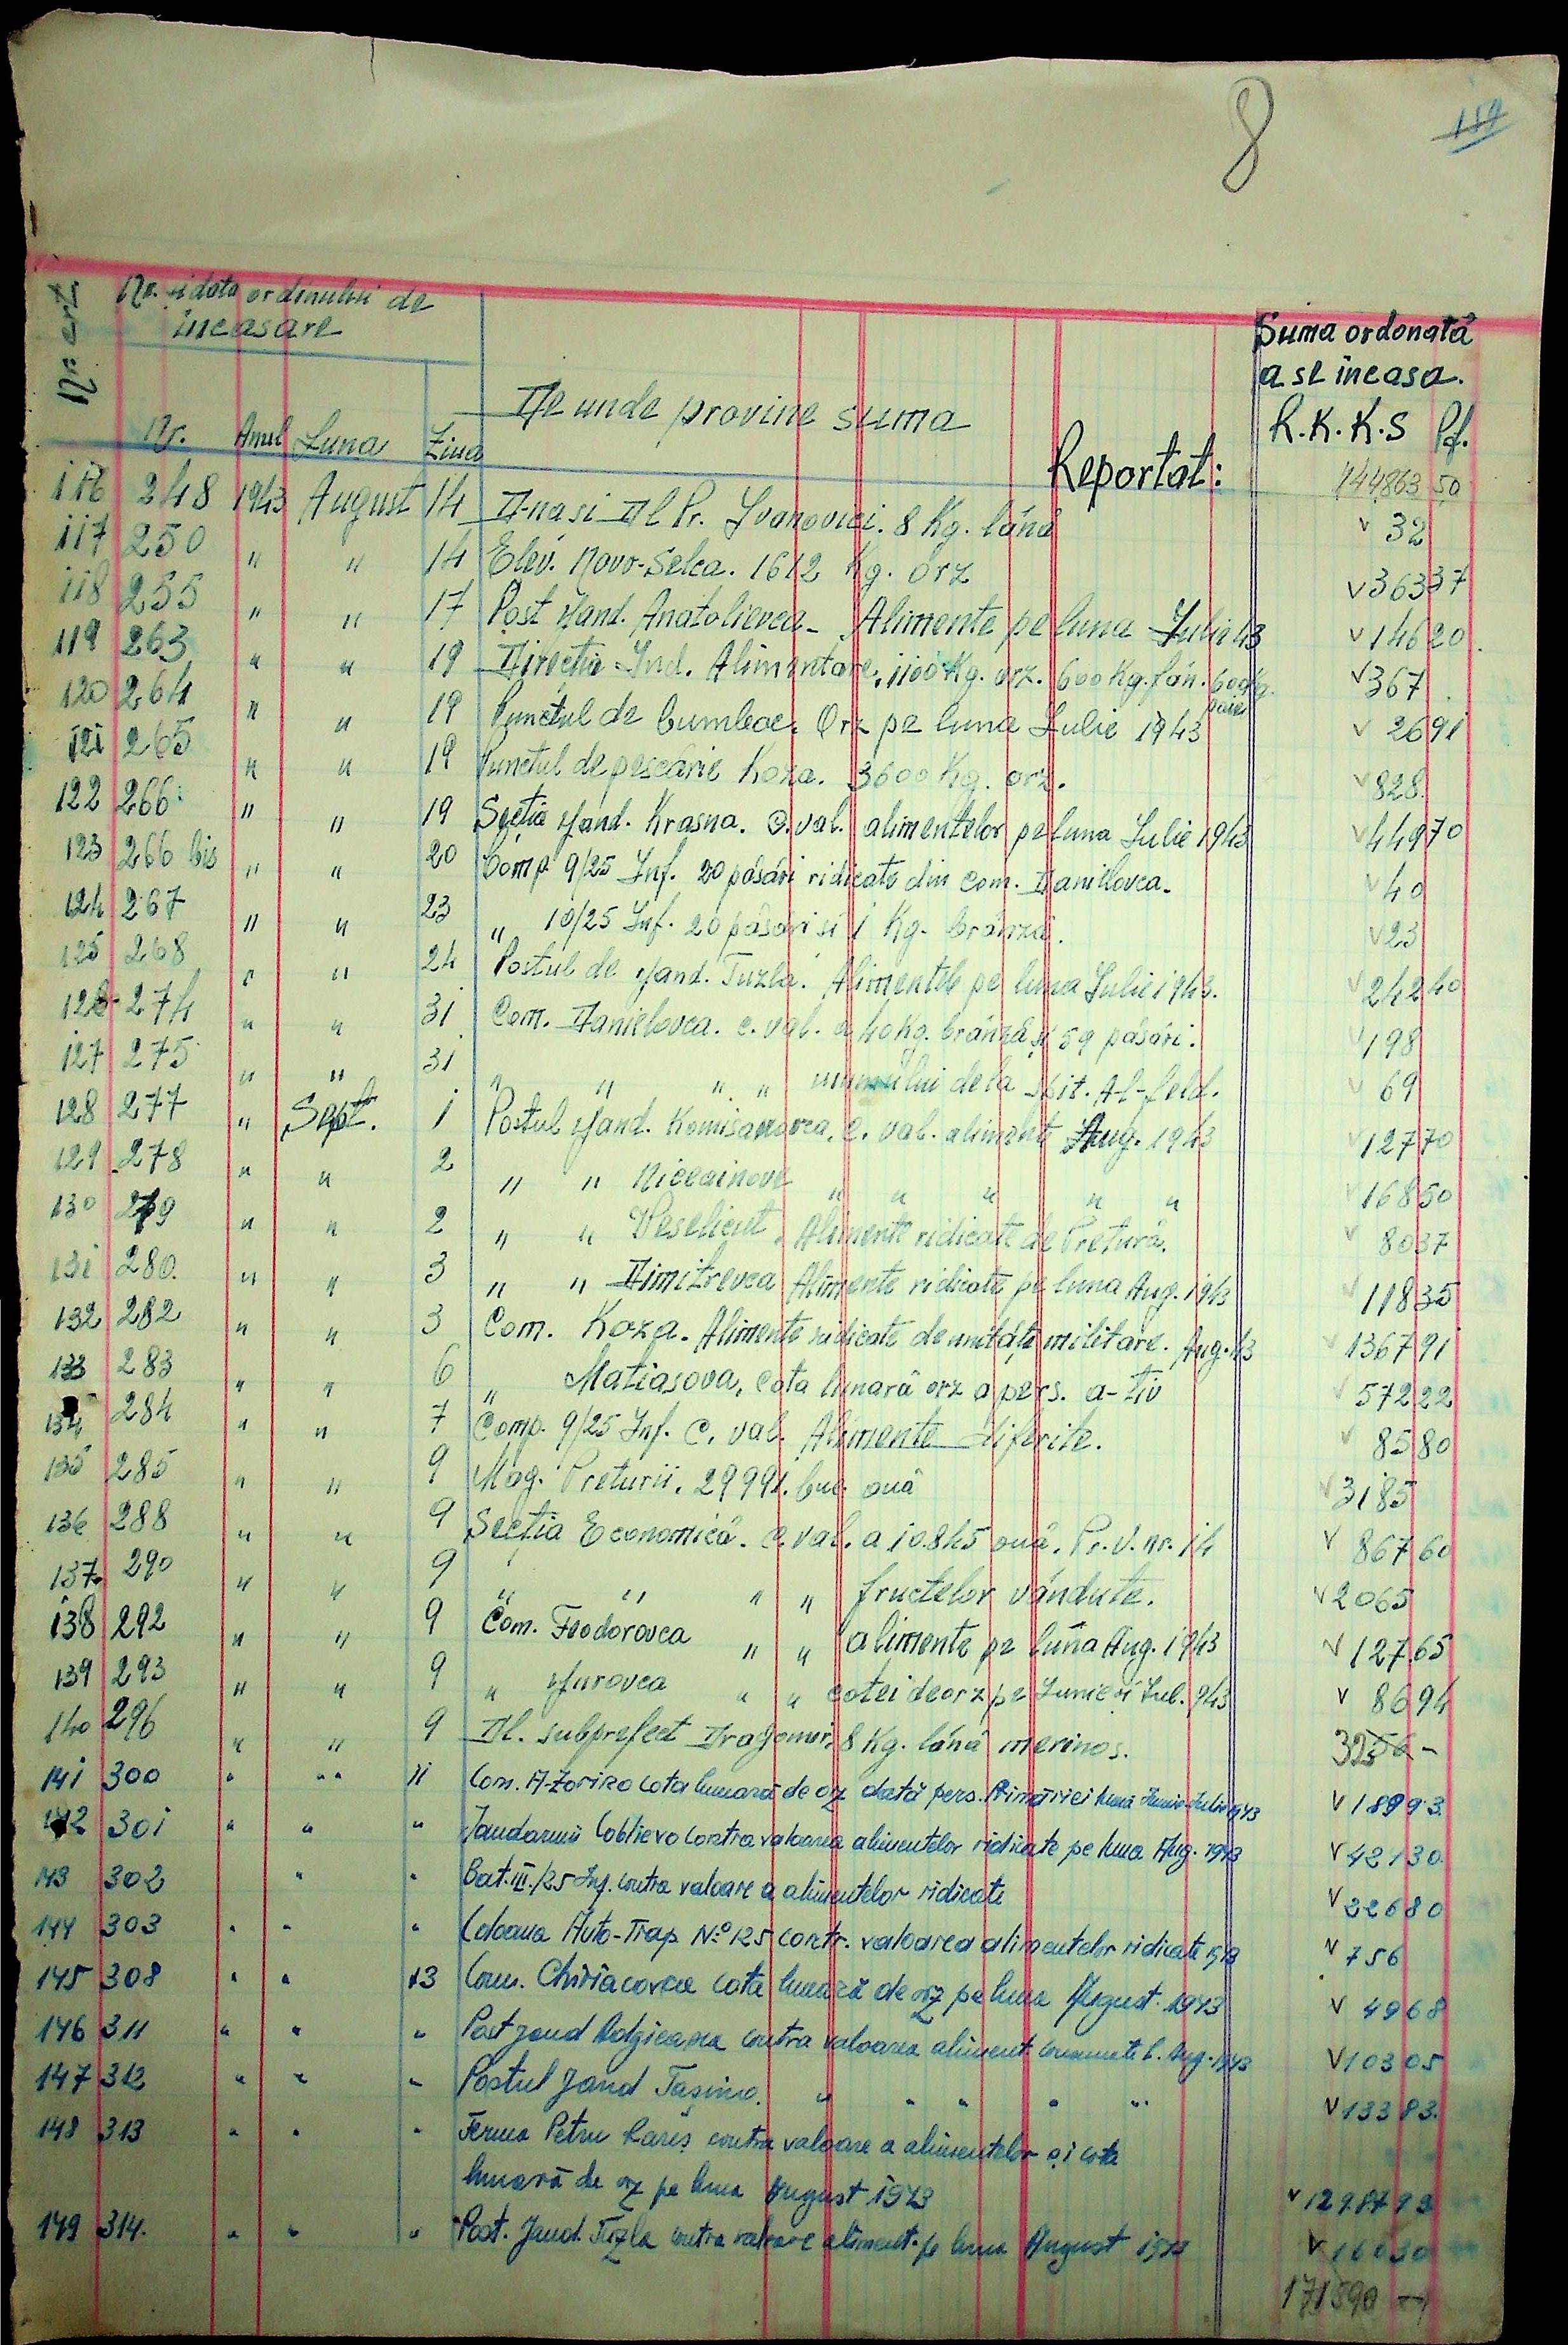 8
159
Nr. crt
Nr. si data ordinului de
incasare
Nr. Anul Luna Ziua
De unde provine suma
Suma ordonată
a se incasa.
R.K.K.S Pf.
Reportat: 144863 50
116 248 1943 August 14 D-na si Dl Pr. Ivanovici. 8 Kg. lână v 32
117 250 " " 14 Elev. Novo-Selca. 1612 Kg. orz v 363 37
118 255 " " 17 Post Jand. Anatolievca - Alimente pe luna Iulie 43 v 146 20
119 263 " " 19 Direcția Ind. Alimentare, 1100 Kg. orz. 600 Kg. fân. 600 Kg. paie v 367
120 264 " " 19 Punctul de bumbac. Orz pe luna Iulie 1943 v 26 91
121 265 " " 19 Punctul de pescărie Koza. 3600 Kg. orz. v 828
122 266 " " 19 Secția Jand. Krasna. C. val. alimentelor pe luna Iulie 1943 v 449 70
123 266 bis " " 20 Comp. 9/25 Inf. 20 păsări ridicate din com. Danillovca. v 40
124 267 " " 23 " 10/25 Inf. 20 păsări si 1 Kg. brânză. v 23
125 268 " " 24 Postul de Jand. Tuzla. Alimentele pe luna Iulie 1943. v 242 40
126 274 " " 31 Com. Danielovca. c. val. a 40 Kg. brânză și 59 păsări. v 198
127 275 " " 31 " " " " de la v 69
128 277 " Sept. 1 Postul Jand. Komisarovca, c. val. alimente Aug. 1943 v 127 70
129 278 " " 2 " " " " " " " v 168 50
130 279 " " 2 " " Veselicut. Alimente ridicate de Pretură. v 80 37
131 280 " " 3 " " Dimitrevca Alimente ridicate pe luna Aug. 1943 v 118 35
132 282 " " 3 Com. Koza. Alimente ridicate de unități militare. Aug. 43 v 1367 91
133 283 " " 6 " Matiasova, cota lunară orz a pers. a-tiv v 572 22
134 284 " " 7 Comp. 9/25 Inf. C. val. Alimente diferite. v 85 80
135 285 " " 9 Mag. Preturii, 29991. buc. ouă v 3185
136 288 " " 9 Secția Economică. c. val. a 10.845 ouă. Pr. V. nr. 14 v 867 60
137. 290 " " 9 " " " " fructelor vândute. v 2065
138 292 " " 9 Com. Feodorovca " " alimente pe luna Aug. 1943 v 127.65
139 293 " " 9 " Jurovca " " cotei de orz pe Iunie si Iul. 943 v 86 94
140 296 " " 9 Dl. subprefect Dragomir, 8 Kg. lână merinos. 32 -
141 300 " " " 11 Com. A-Zoriro cota lunară de orz dată pers. Primăriei luna Iunie-Iulie 1943 v 189 93
142 301 " " " Jandarmi Coblievo contra valoarea alimentelor ridicate pe luna Aug. 1943 v 421 30
143 302 " " Bat. III/25 Inf. contra valoare a alimentelor ridicate v 226 80
144 303 " " " Coloana Auto-Trap No 125 contr. valoarea alimentelor ridicate 1943 v 756
145 308 " " 13 Com. Chiriacovca cota lunară de orz pe luna August. 1943 v 49 68
146 311 " " " Post jand contra valoarea aliment. consumate l. Aug. 1943 v 103 05
147 312 " " " Postul Jand Tașino. " " " " " v 133 83
148 313 " " " Ferma Petru Rareș contra valoare a alimentelor și cota
lunară de orz pe luna August 1943 v 1298 73
149 314. " " " Post. Jand Tuzla contra valoare aliment. pe luna August 1943 v 160 30